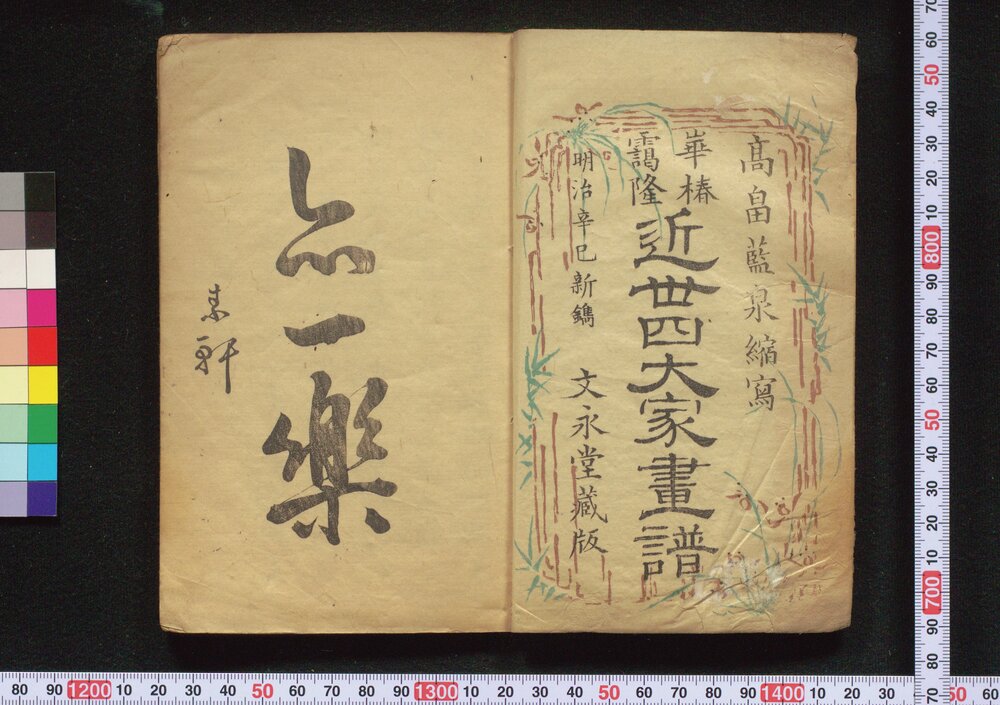 高畠藍泉縮寫
崋椿
靄隆
近世四大家畫譜
明治辛巳新鐫 文永堂藏版
亦一樂
素軒
80 90 1200 10 20 30 40 50 60 70 80 90 1300 10 20 30 40 50 60 70 80 90 1400 10 20 30 50 60
70 60 50 40 30 20 10 800 90 80 70 60 50 40 30 20 10 700 90 80 70